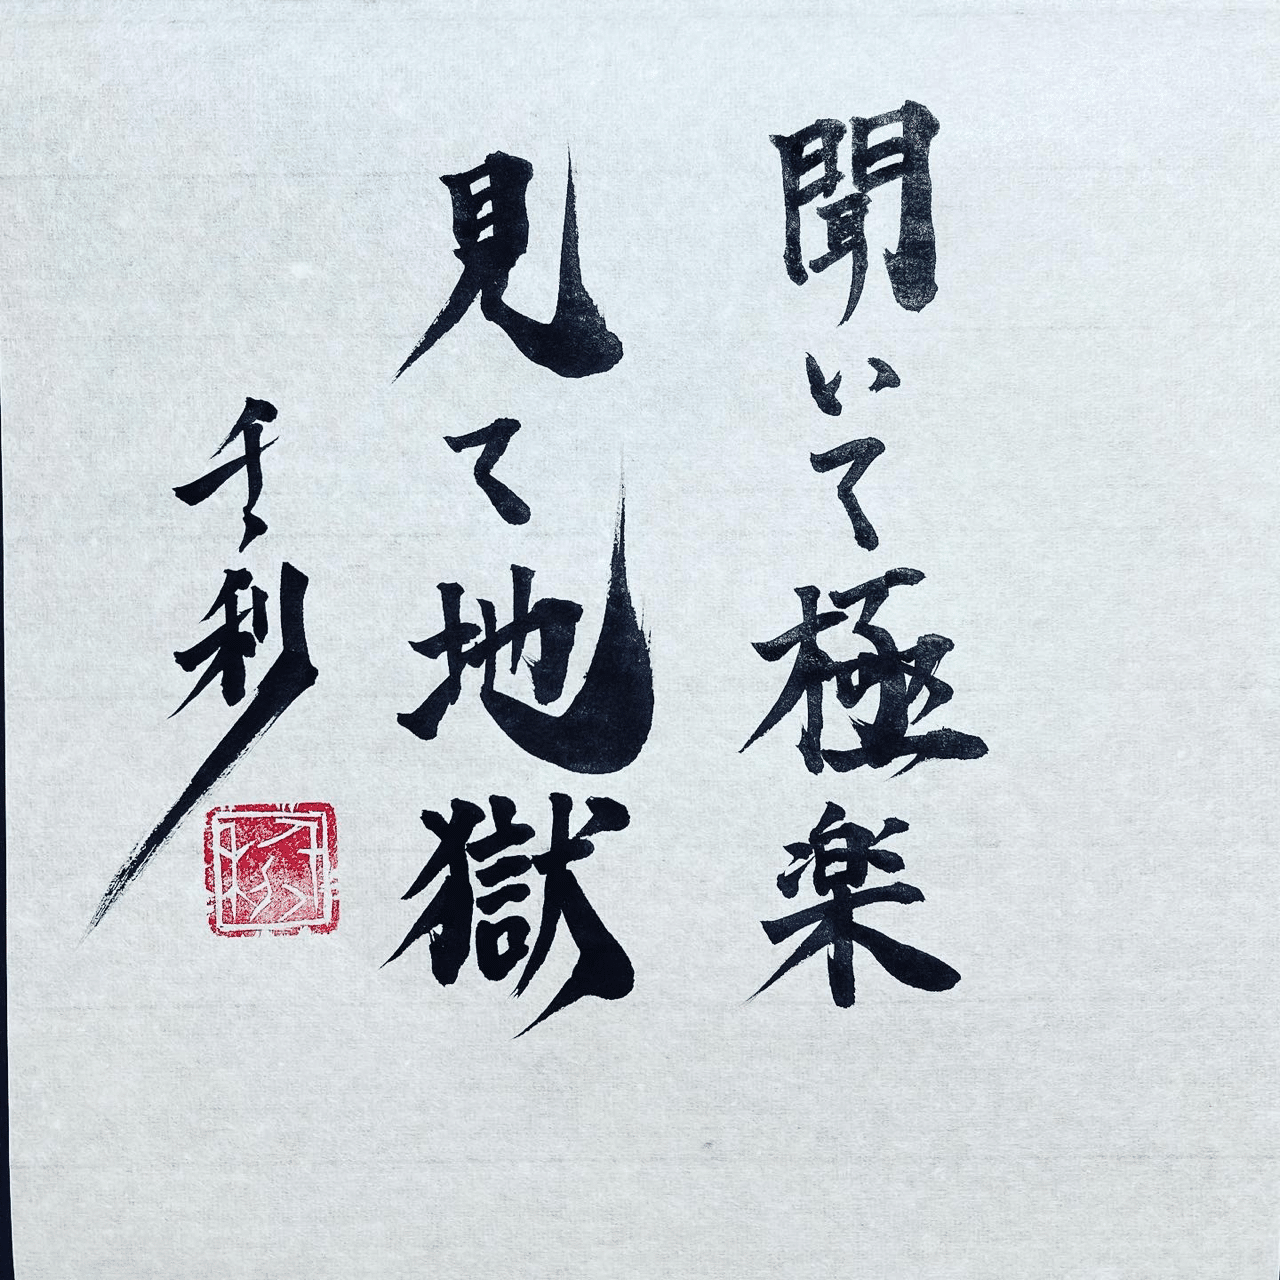 聞いて極楽
見て地獄
千利